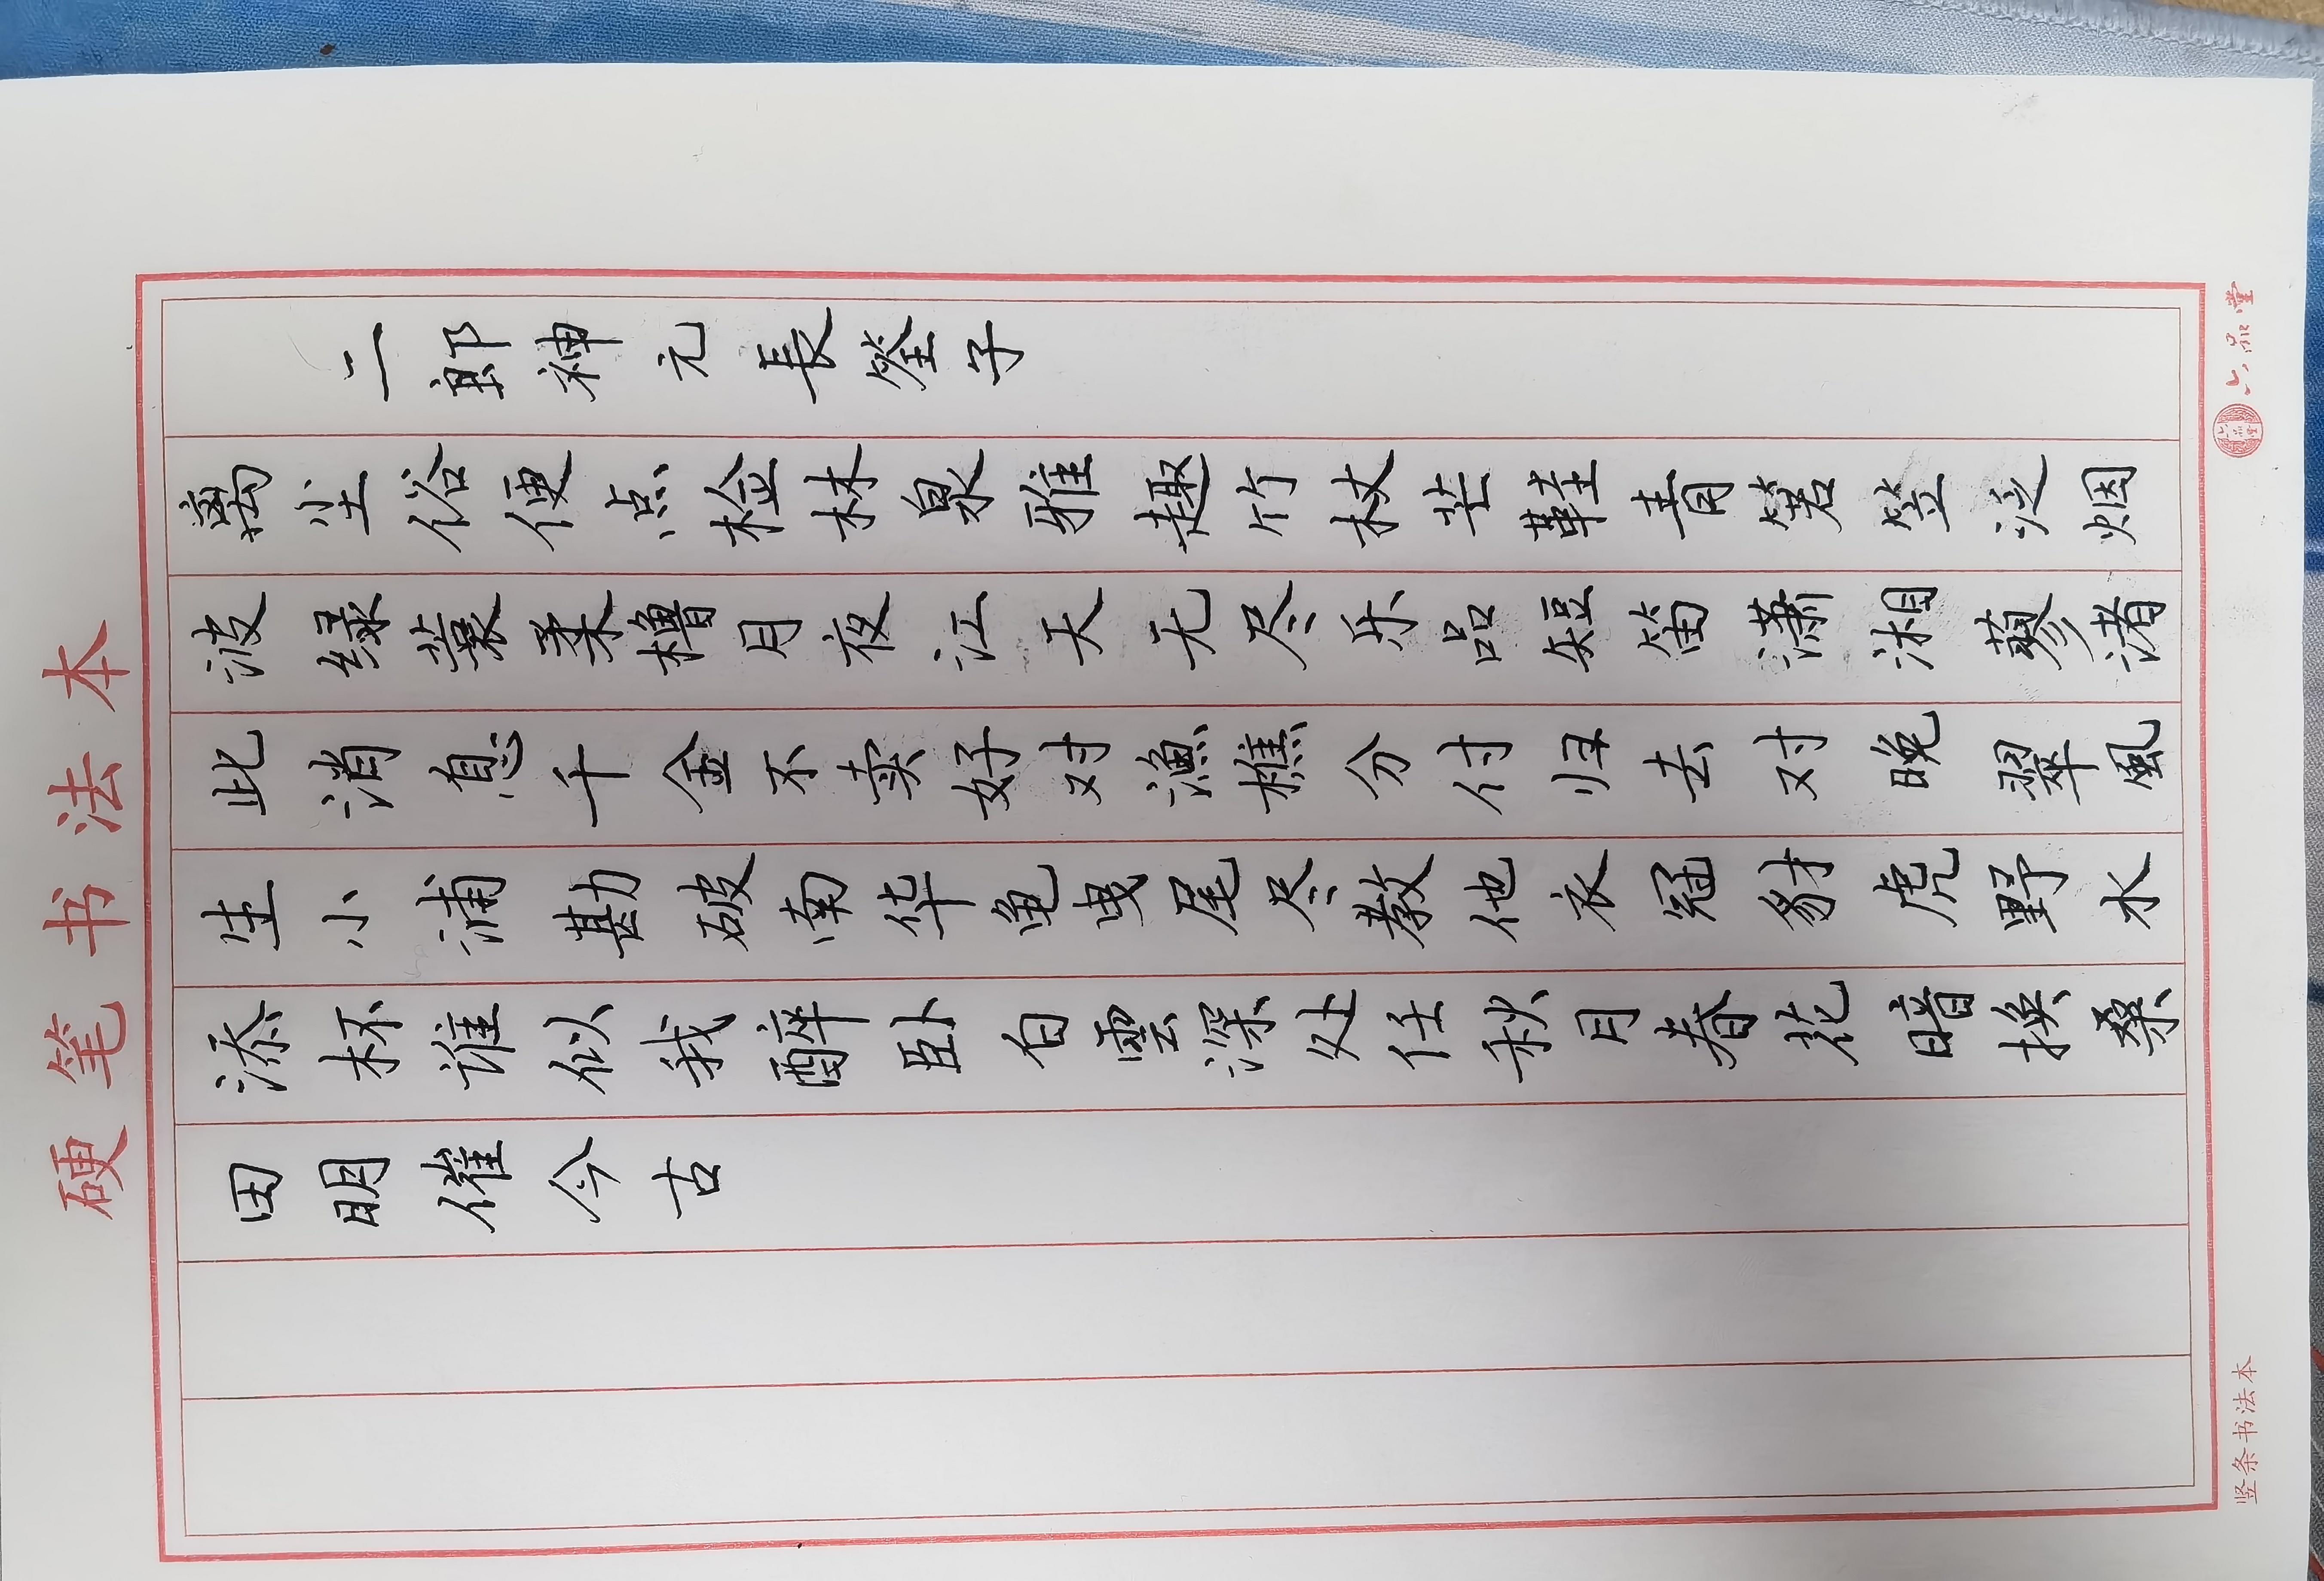 硬笔书法本
二郎神元長筌子
离尘俗便点检林泉雅趣竹杖芒鞋青箬笠泛烟
波绿蓑柔橹月夜江天无尽乐品短笛潇湘蓼渚
此消息千金不卖好对渔樵分付归去对晚翠風
生小浦勘破南华龟曳尾尽教他衣冠豺虎野水
添杯谁似我醉卧白雲深处任秋月春花暗换桑
田明催今古
六品堂
竖条书法本